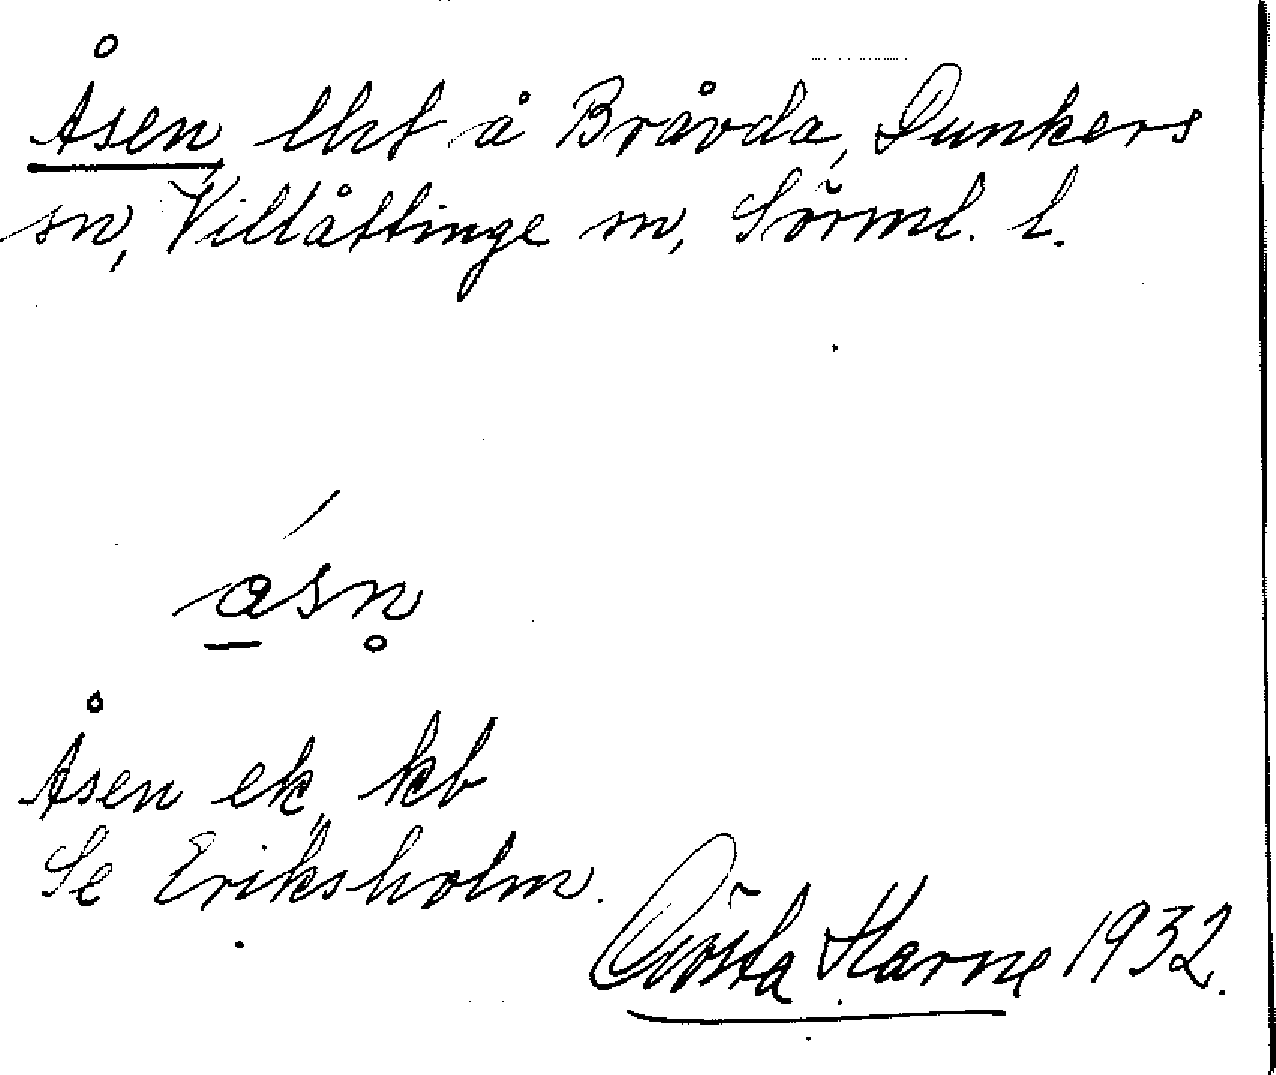 Åsen, lht å Bråvda, Dunkers
sn, Villåttinge sn, Sörml. l.
åsn̥
Åsen ek, kb
Se Eriksholm.
Gösta Harne 1932.